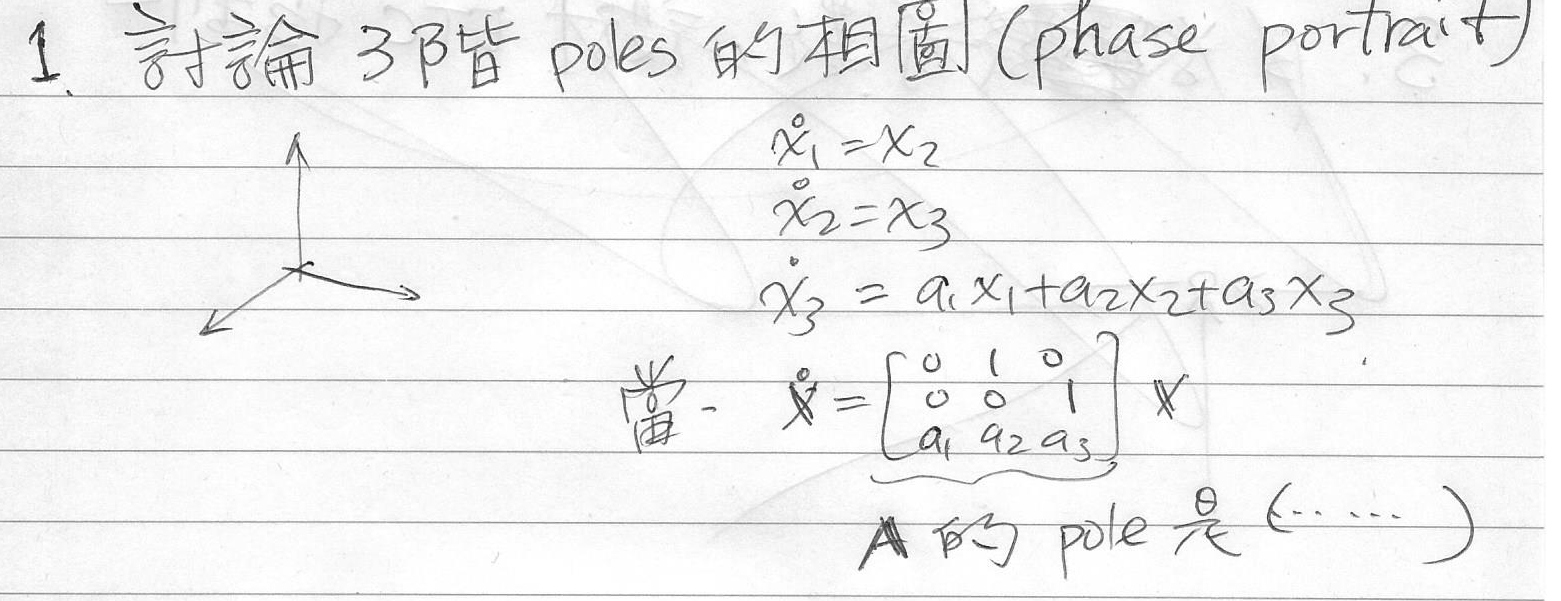 1. 討論 3階 poles 的相圖 (phase portrait)
ẋ₁ = x₂
ẋ₂ = x₃
ẋ₃ = a₁x₁ + a₂x₂ + a₃x₃
當 - ẋ = [0 1 0
0 0 1
a₁ a₂ a₃] x
A 的 pole 是 (......)